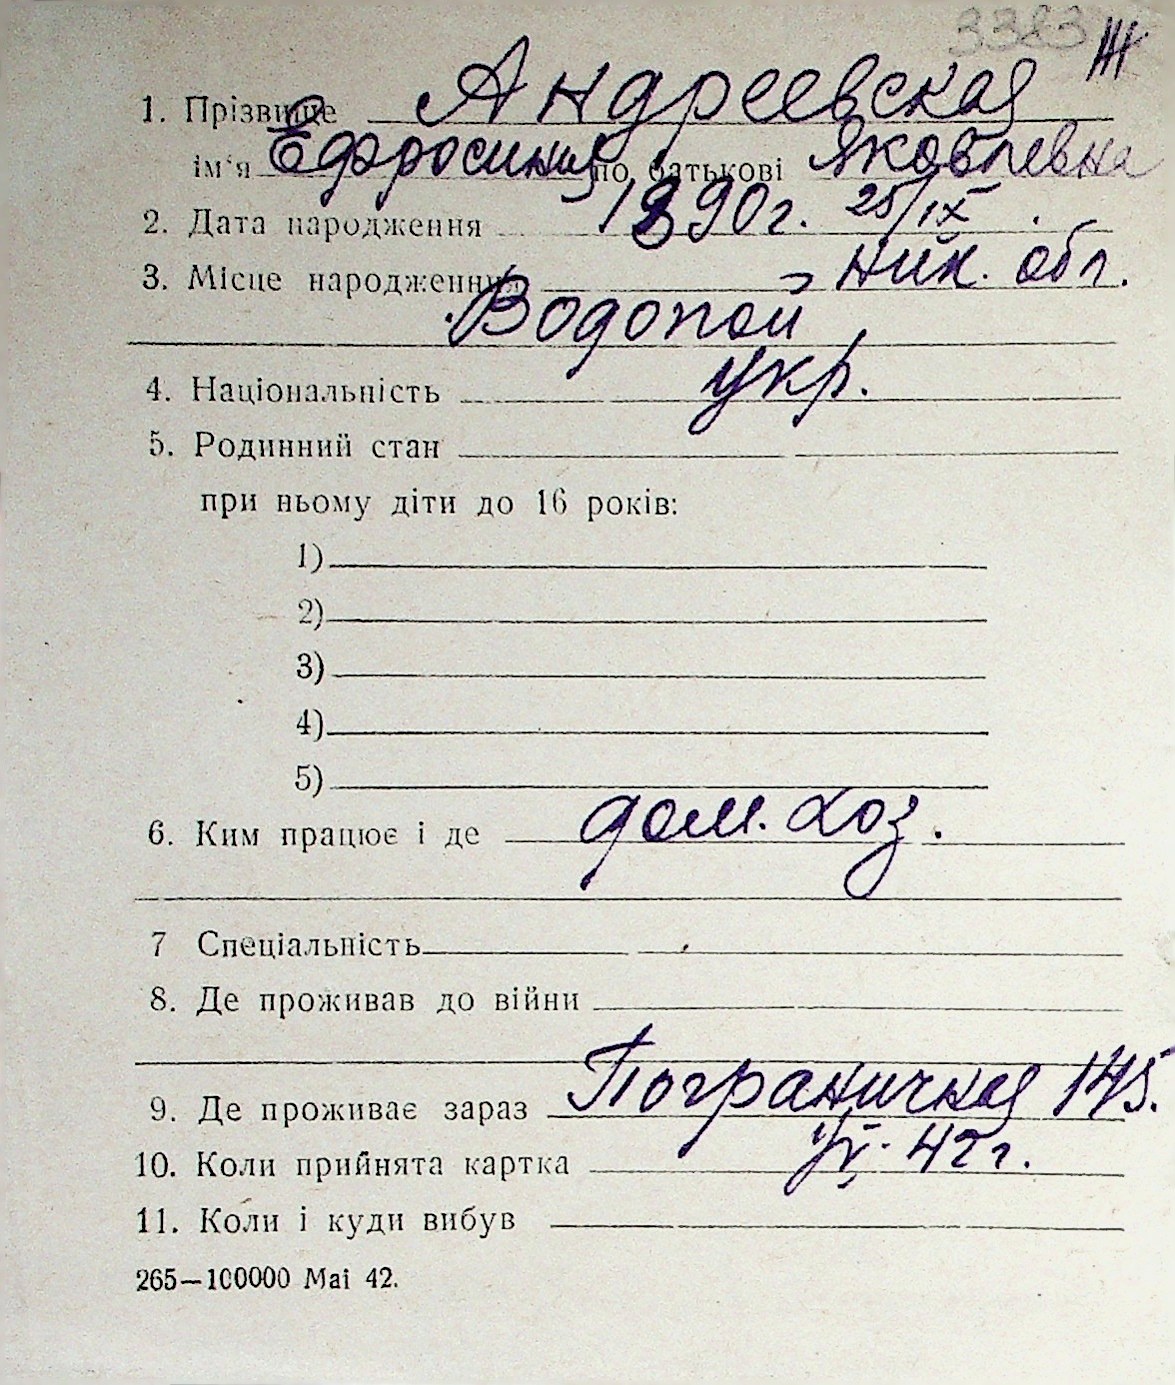 3383 Ж
1. Прізвище Андреевская
ім'я Ефросиния по батькові Яковлевна
2. Дата народження 1890г. 25/IX
3. Місце народження Ник. обл.
Водопой
4. Національність укр.
5. Родинний стан
при ньому діти до 16 років:
1)
2)
3)
4)
5)
6. Ким працює і де дом. хоз.
7 Спеціальність
8. Де проживав до війни
9. Де проживає зараз Пограничная 145.
10. Коли прийнята картка 42 г.
11. Коли і куди вибув
265—100000 Mai 42.